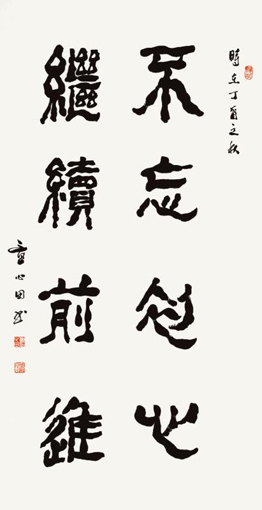 時在丁酉之秋
不忘初心
繼續前進
童心田